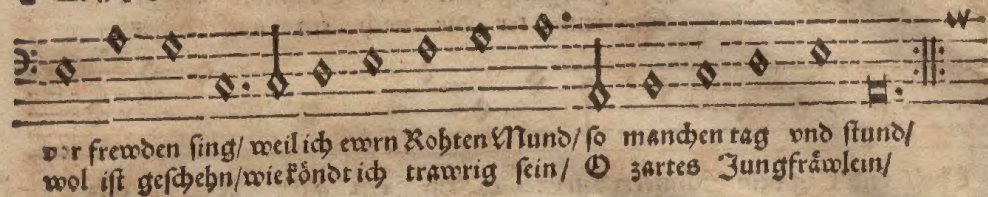 vor frewden sing/ weil ich ewrn Rohten Mund/ so manchen tag vnd stund/
wol ist geschehn/ wie köndt ich trawrig sein/ O zartes Jungfräwlein/